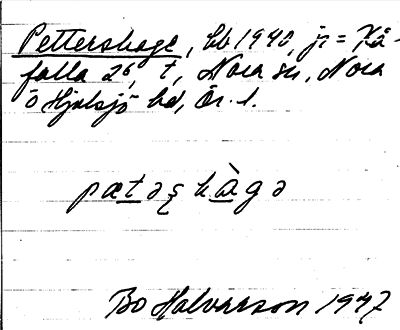 Pettershage, bb 1940, jr = Kå-
falla 2⁶, t, Nora sn, Nora
o Hjulsjö bd, Ör. l.
pætəʂhàgə
Bo Halvarsson 1947